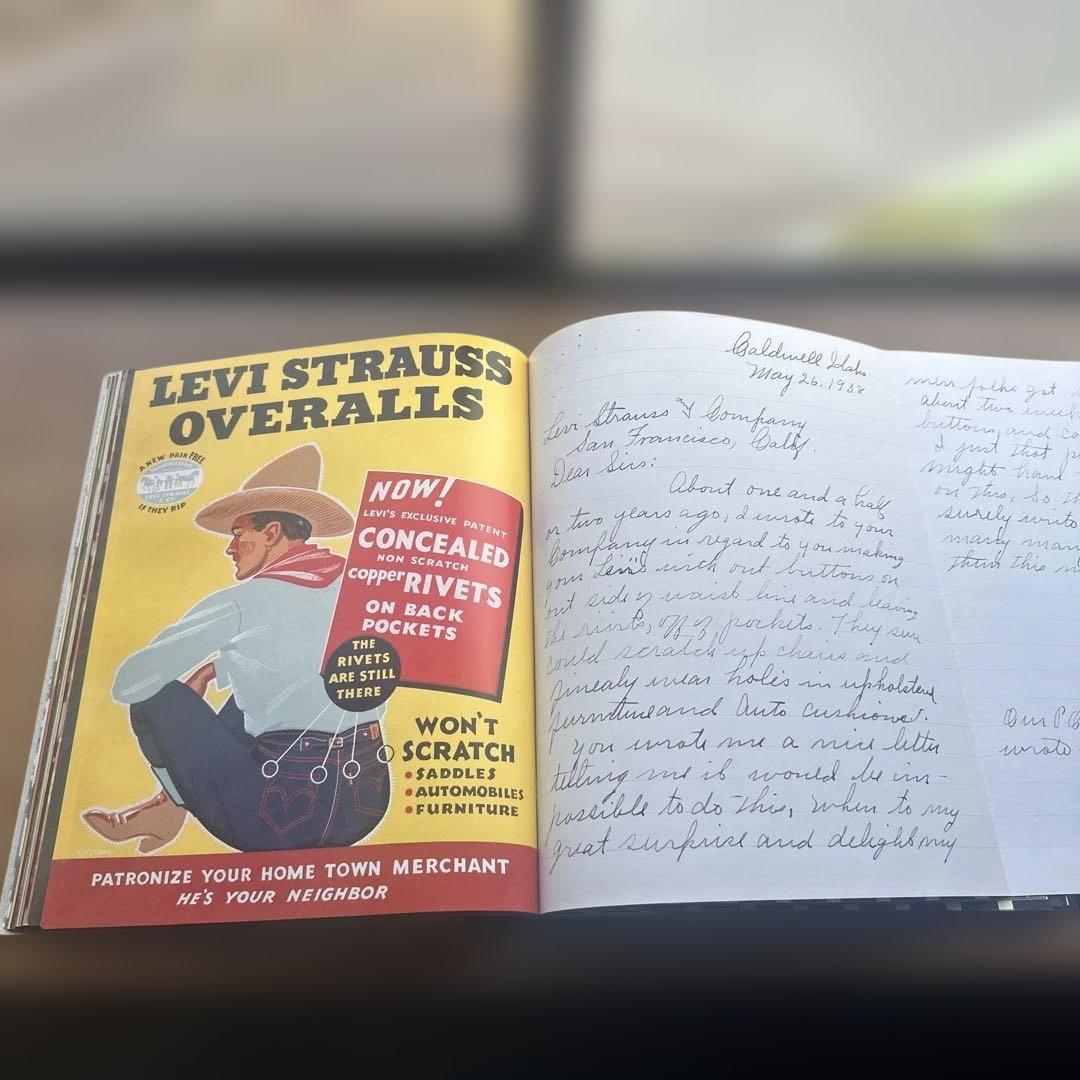 LEVI STRAUSS
OVERALLS
A NEW PAIR FREE
LEVI STRAUSS
& CO
IF THEY RIP
NOW!
LEVI'S EXCLUSIVE PATENT
CONCEALED
NON SCRATCH
copper RIVETS
ON BACK
POCKETS
THE
RIVETS
ARE STILL
THERE
WON'T
SCRATCH
• SADDLES
• AUTOMOBILES
• FURNITURE
PATRONIZE YOUR HOME TOWN MERCHANT
HE'S YOUR NEIGHBOR
Caldwell Idaho
May 26, 1938
Levi Strauss and Company
San Francisco, Calif.
Dear Sirs:
About one and a half
or two years ago, I wrote to your
Company in regard to you making
your Levi's with out buttons on
out side of waist line and leaving
the rivets, off of pockets. They sure
could scratch up chairs and
wear holes in upholstered
furniture and Auto cushions.
You wrote me a nice letter
telling me it would be im-
possible to do this, when to my
great surprise and delight my
men folks got
about two
buttons, and
I just that
might have
on this, so
surely
many
them this
Our P.
wrote